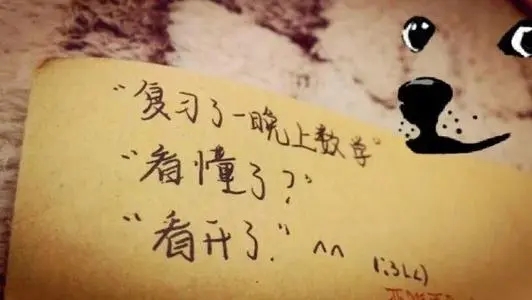 “复习了一晚上数学”
“看懂了?”
“看开了.” ^^